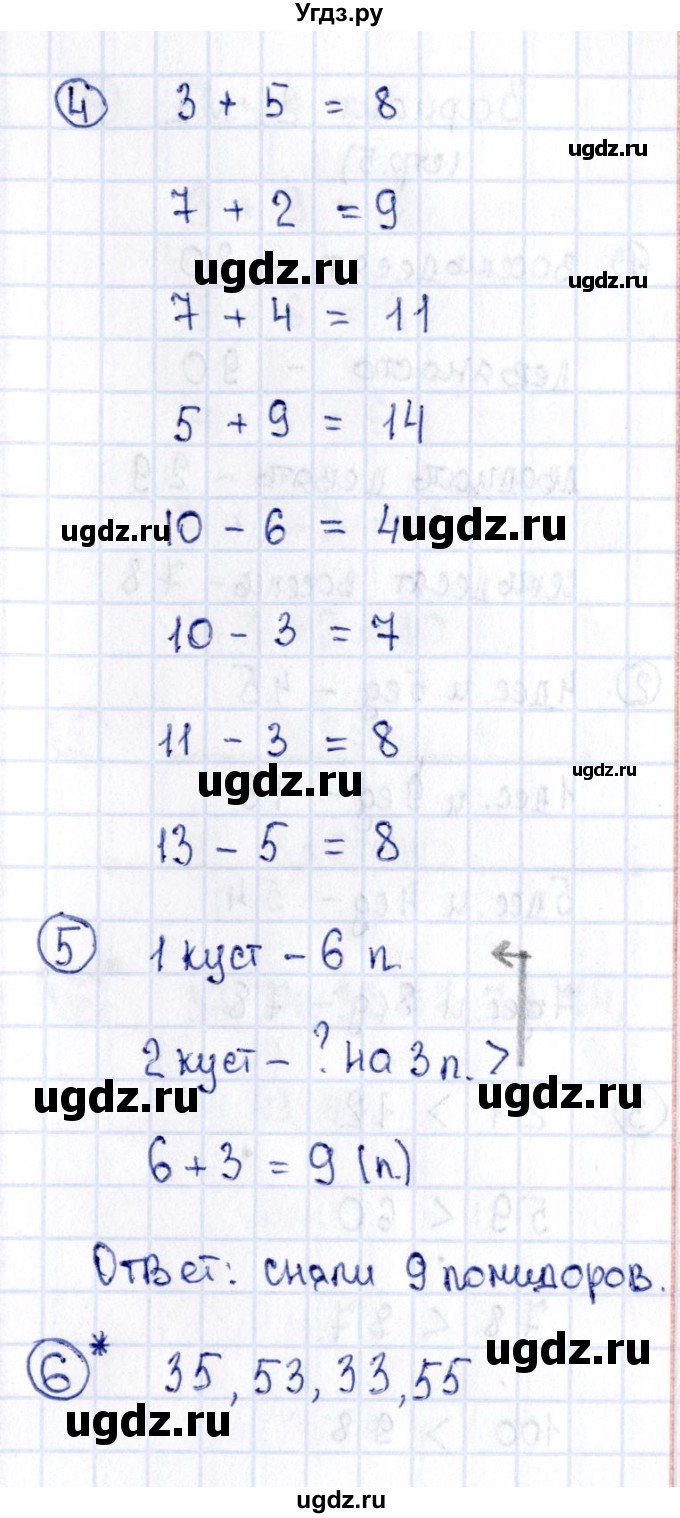 Угдз.ру
④ 3 + 5 = 8
ugdz.ru
7 + 2 = 9
ugdz.ru
ugdz.ru
7 + 4 = 11
5 + 9 = 14
ugdz.ru
ugdz.ru
10 - 6 = 4
10 - 3 = 7
11 - 3 = 8
ugdz.ru
ugdz.ru
13 - 5 = 8
⑤ 1 куст - 6 п.
2 куст - ? на 3 п. >
ugdz.ru
ugdz.ru
6 + 3 = 9 (п.)
Ответ: сняли 9 помидоров.
ugdz.ru
⑥* 35, 53, 33, 55
ugdz.ru
ugdz.ru